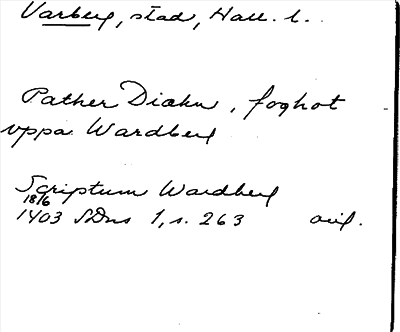 Varberg, stad, Hall. l.
Pather Diækn, foghot
vppa Wardberg
Scriptum Wardberg
18/6
1403 SDns 1, s. 263 avil.